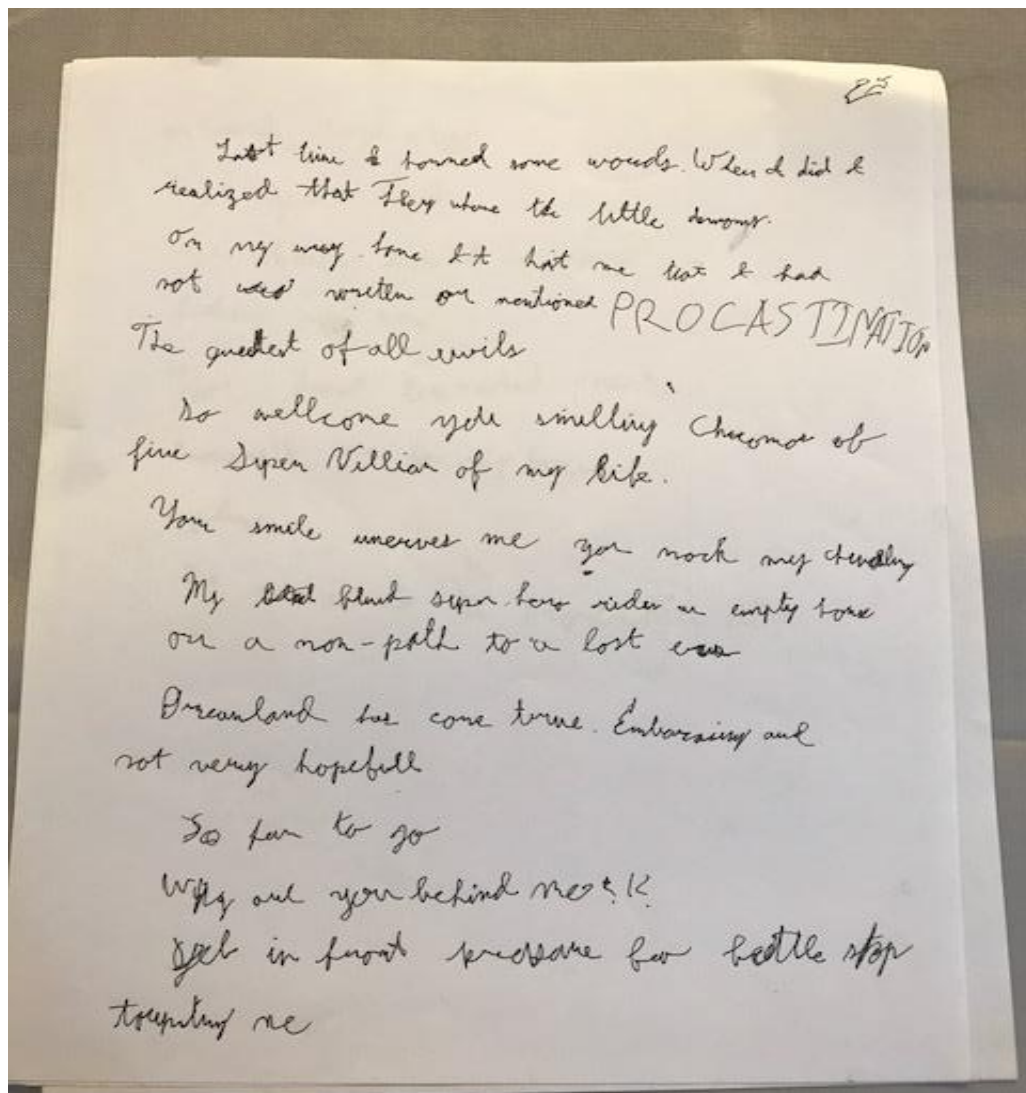 25
Last time I formed some words. When I did I
realized that They where the little demons.
On my way home It hit me that I had
not written or mentioned PROCASTINATION
The greatest of all evils
So wellcome you smelling of
fine Super Villian of my life.
Your smile unerves me you mock my
My black super hero rides an empty horse
on a non-path to a lost
Dreamland has come true. Embarising and
not very hopefull
So far to go
Why are you behind me
in front for battle stop
me